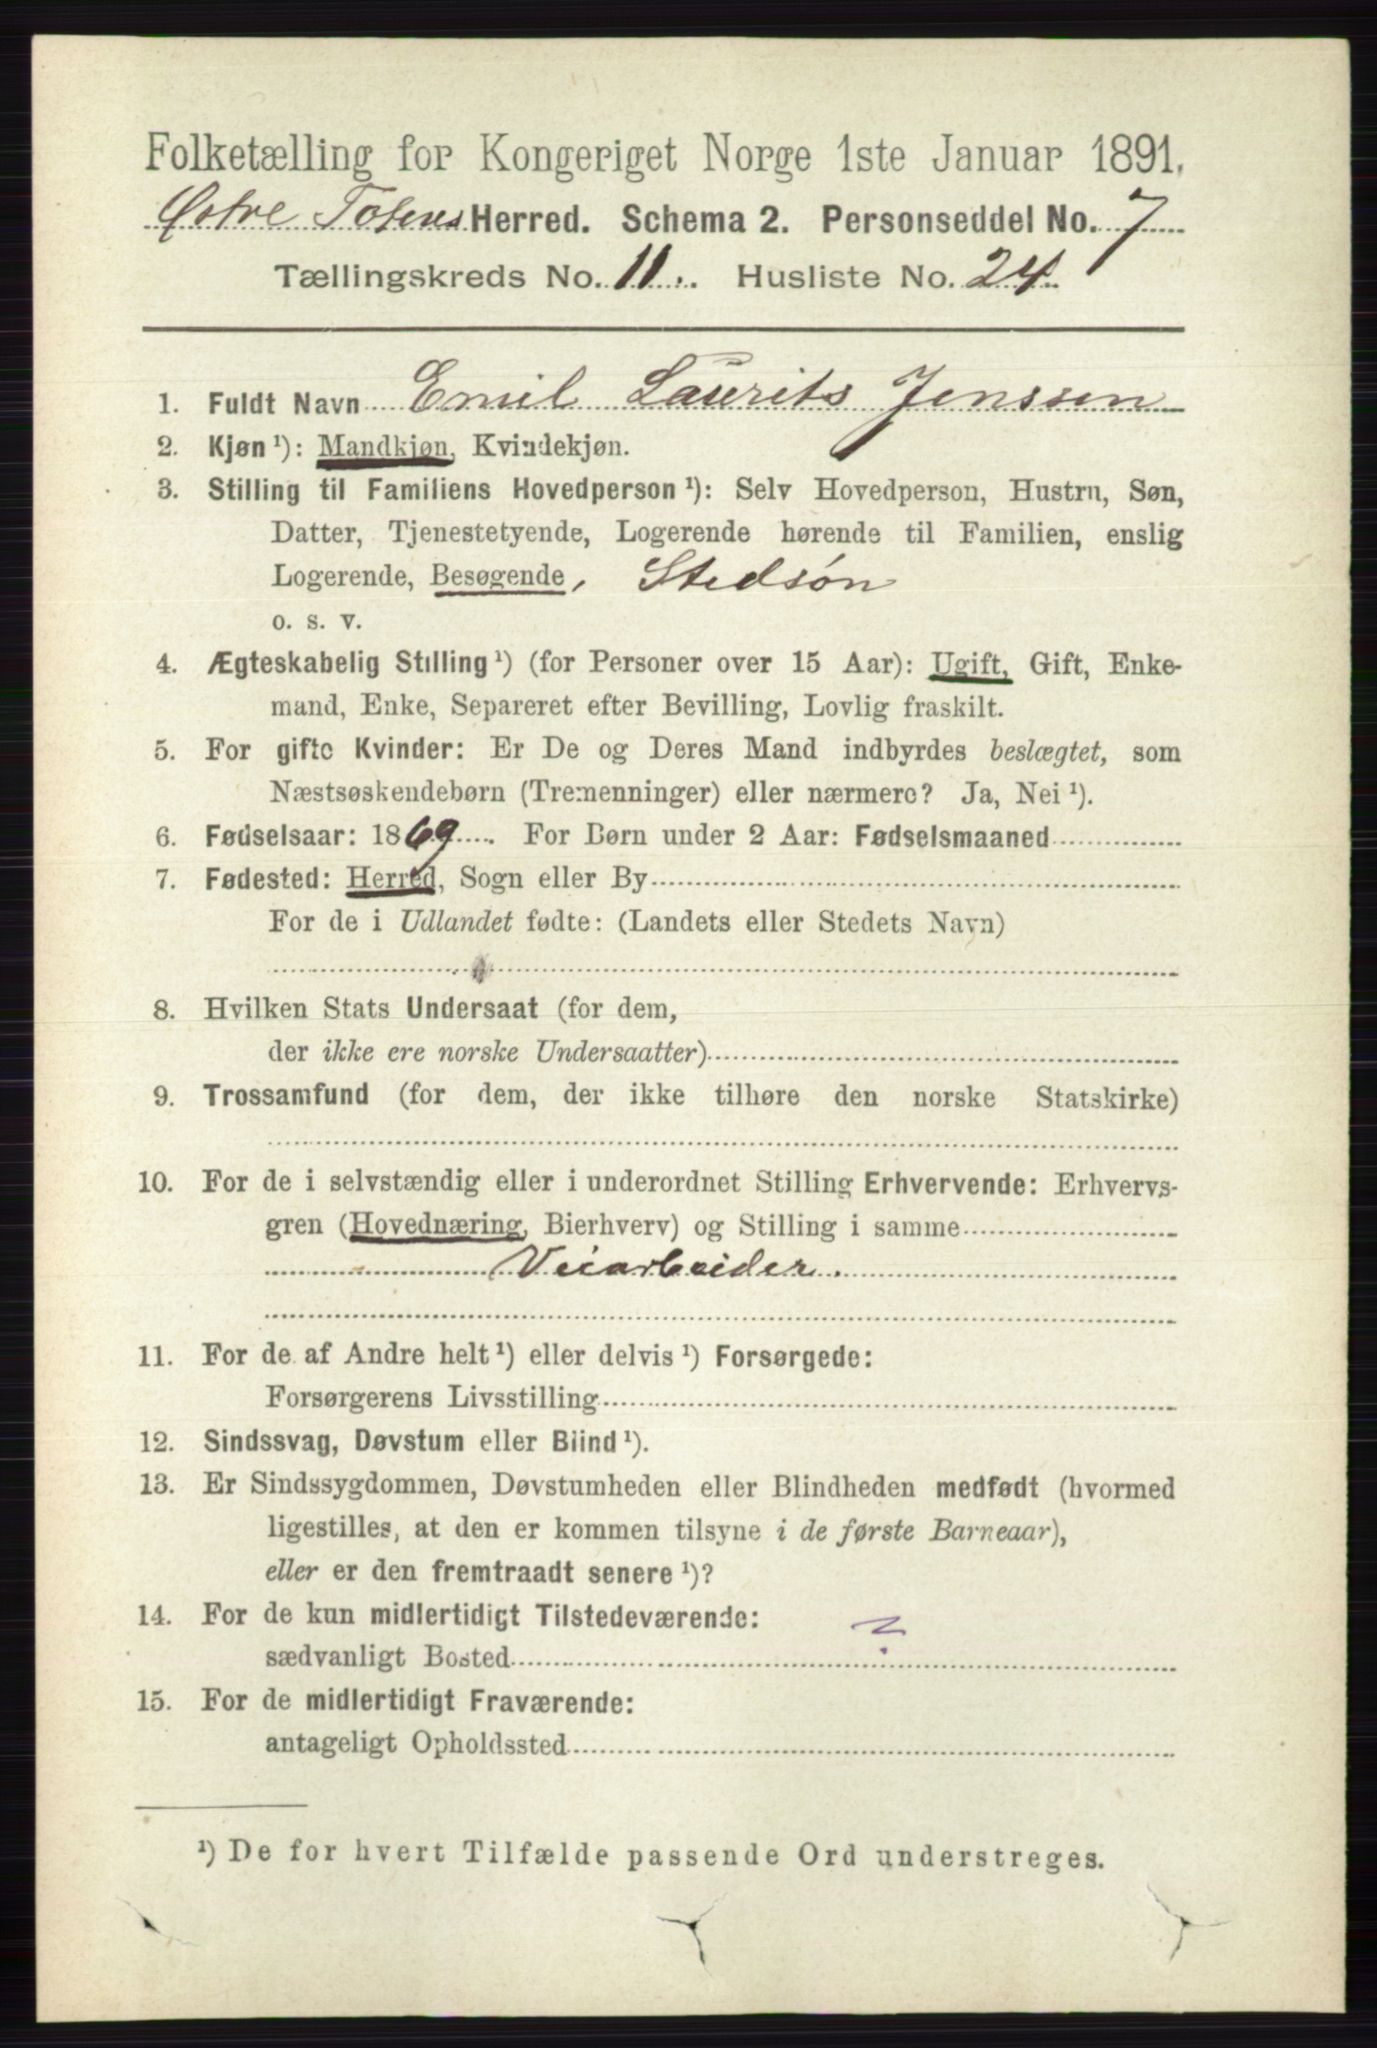 Folketælling for Kongeriget Norge 1ste Januar 1891.
Østre Totens Herred. Schema 2. Personseddel No. 7
Tællingskreds No. 11. Husliste No. 24.
1. Fuldt Navn Emil Laurits Jenssen
2. Kjøn ¹): Mandkjøn, Kvindekjøn.
3. Stilling til Familiens Hovedperson ¹): Selv Hovedperson, Hustru, Søn,
Datter, Tjenestetyende, Logerende hørende til Familien, enslig
Logerende, Besøgende, Stedsøn
o. s. v.
4. Ægteskabelig Stilling ¹) (for Personer over 15 Aar): Ugift, Gift, Enke-
mand, Enke, Separeret efter Bevilling, Lovlig fraskilt.
5. For gifte Kvinder: Er De og Deres Mand indbyrdes beslægtet, som
Næstsøskendebørn (Tremenninger) eller nærmere? Ja, Nei ¹).
6. Fødselsaar: 1869. For Børn under 2 Aar: Fødselsmaaned
7. Fødested: Herred, Sogn eller By
For de i Udlandet fødte: (Landets eller Stedets Navn)
8. Hvilken Stats Undersaat (for dem,
der ikke ere norske Undersaatter)
9. Trossamfund (for dem, der ikke tilhøre den norske Statskirke)
10. For de i selvstændig eller i underordnet Stilling Erhvervende: Erhvervs-
gren (Hovednæring, Bierhverv) og Stilling i samme
Veiarbeider.
11. For de af Andre helt ¹) eller delvis ¹) Forsørgede:
Forsørgerens Livsstilling
12. Sindssvag, Døvstum eller Blind ¹).
13. Er Sindssygdommen, Døvstumheden eller Blindheden medfødt (hvormed
ligestilles, at den er kommen tilsyne i de første Barneaar),
eller er den fremtraadt senere ¹)?
14. For de kun midlertidigt Tilstedeværende:
sædvanligt Bosted ?
15. For de midlertidigt Fraværende:
antageligt Opholdssted
¹) De for hvert Tilfælde passende Ord understreges.